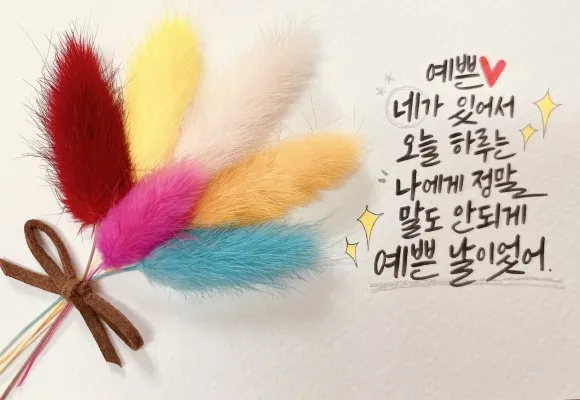 예쁜
네가 있어서
오늘 하루는
나에게 정말
말도 안되게
예쁜 날이었어.